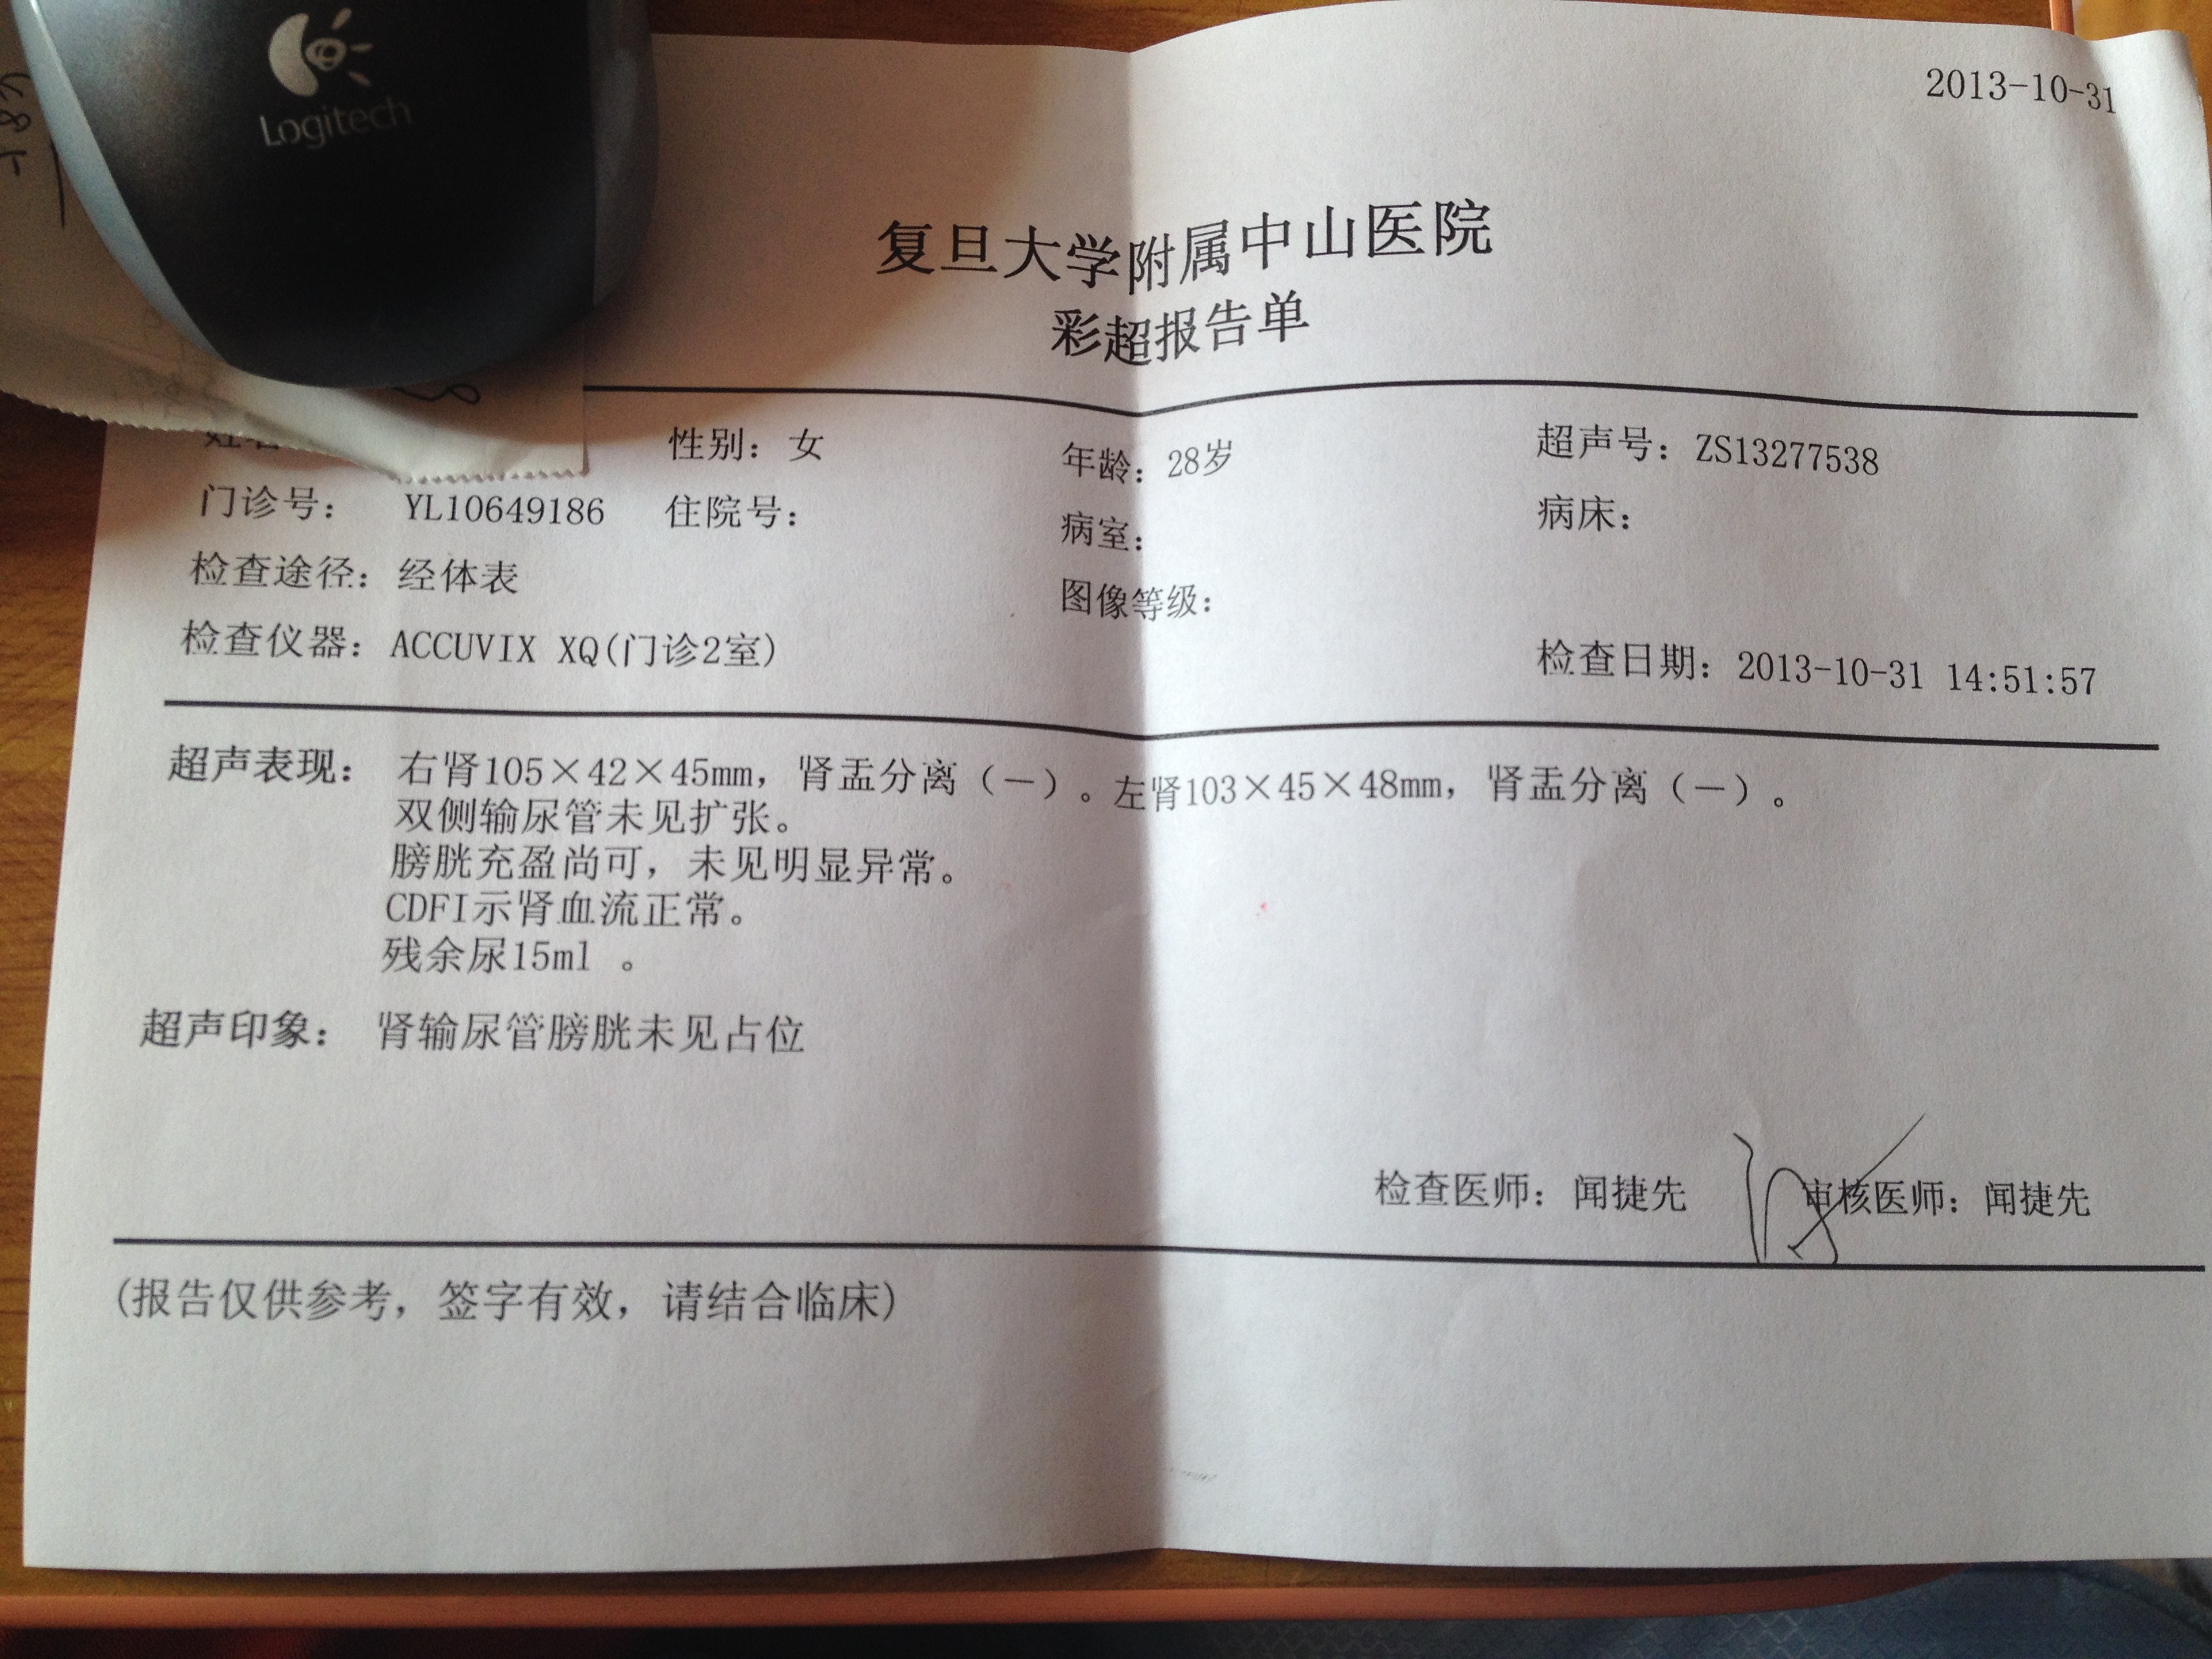 Logitech
2013-10-31
复旦大学附属中山医院
彩超报告单
姓名 性别：女 年龄：28岁 超声号：ZS13277538
门诊号： YL10649186 住院号： 病室： 病床：
检查途径：经体表 图像等级：
检查仪器：ACCUVIX XQ(门诊2室) 检查日期：2013-10-31 14:51:57
超声表现： 右肾105×42×45mm，肾盂分离（—）。左肾103×45×48mm，肾盂分离（—）。
双侧输尿管未见扩张。
膀胱充盈尚可，未见明显异常。
CDFI示肾血流正常。
残余尿15ml 。
超声印象： 肾输尿管膀胱未见占位
检查医师：闻捷先 审核医师：闻捷先
(报告仅供参考，签字有效，请结合临床)